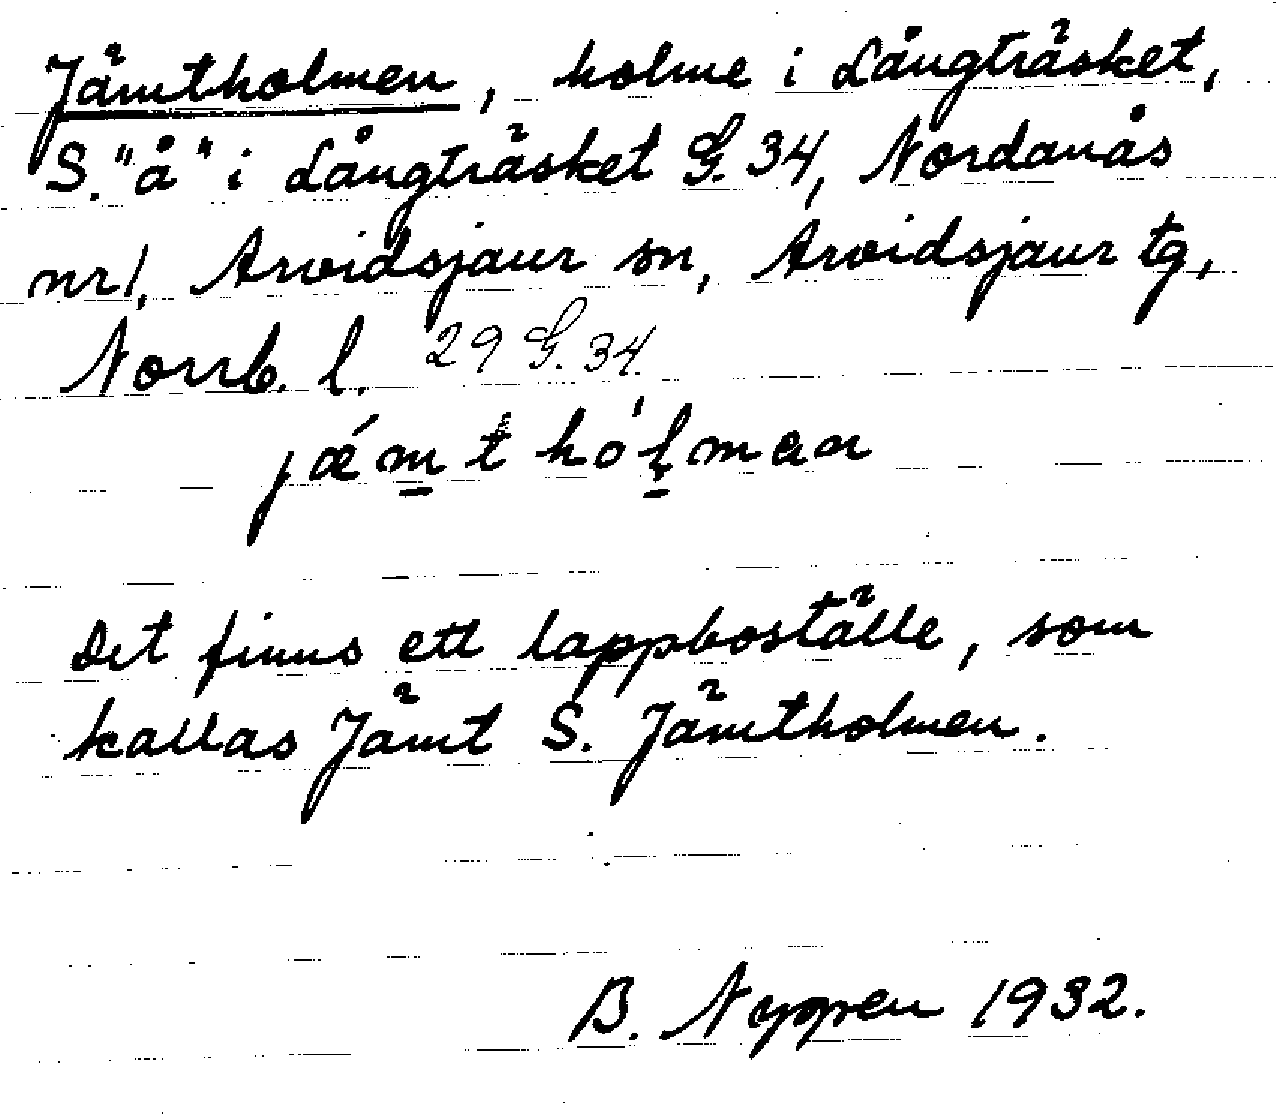 Jämtholmen, holme i Långträsket,
S. "å" i Långträsket G. 34, Nordanås
nr 1, Arvidsjaur sn, Arvidsjaur tg,
Norrb. l. 29 G. 34.
jǽm̱t hó'ḻman
Det finns ett lappboställe, som
kallas Jämt S. Jämtholmen.
B. Nyppen 1932.